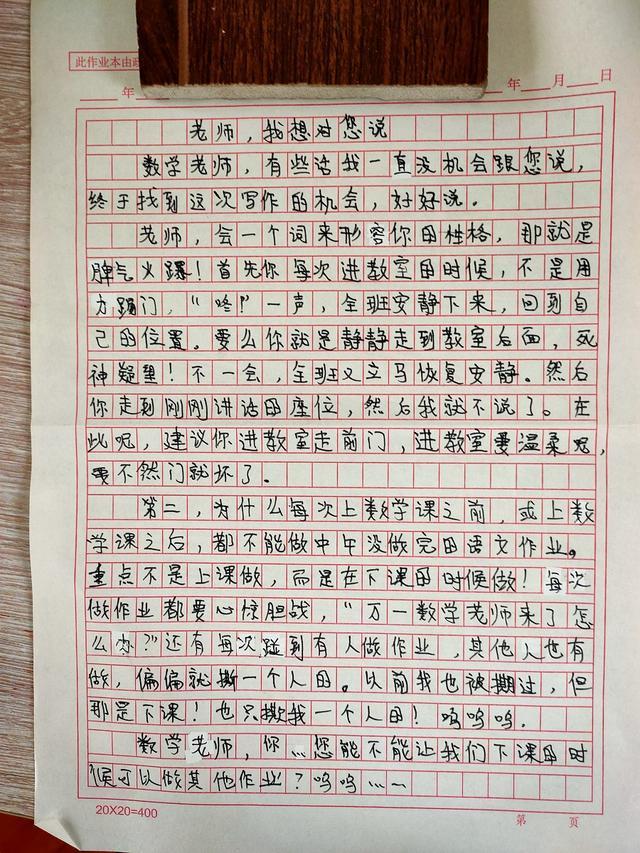 此作业本由
年
年 月 日
老师，我想对您说
数学老师，有些话我一直没机会跟您说，
终于找到这次写作的机会，好好说。
老师，会一个词来形容你的性格，那就是
脾气火躁！首先你每次进教室的时候，不是用
力踢门，“咚！”一声，全班安静下来，回到自
己的位置。要么你就是静静走到教室后面，死
神凝望！不一会，全班又立马恢复安静。然后
你走到刚刚讲话的座位，然后我就不说了。在
此呢，建议你进教室走前门，进教室要温柔呢，
要不然门就坏了。
第二，为什么每次上数学课之前，或上数
学课之后，都不能做中午没做完的语文作业。
重点不是上课做，而是在下课的时候做！每次
做作业都要心惊胆战，“万一数学老师来了怎
么办？”还有每次碰到有人做作业，其他人也有
做，偏偏就撕一个人的。以前我也被撕过，但
那是下课！也只撕我一个人的！呜呜呜．
数学老师，你…您能不能让我们下课的时
候可以做其他作业？呜呜……
20X20=400
第 页